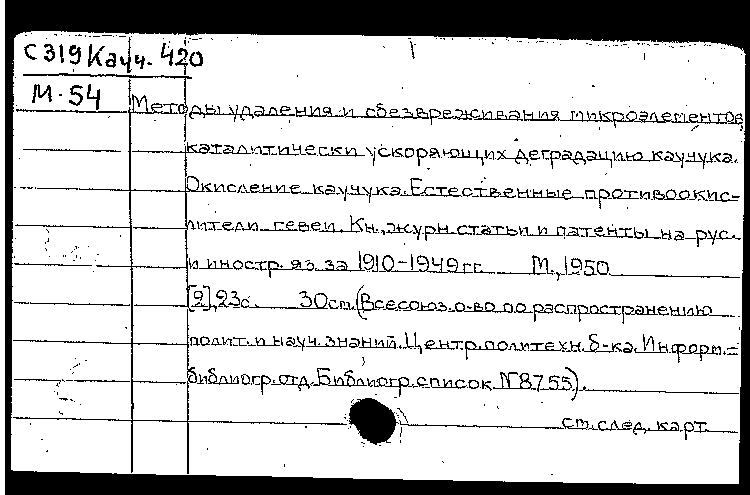 С319Кауч. 420
М-54
Методы удаления и обезвреживания микроэлементов,
каталитически ускоряющих деградацию каучука.
Окисление каучука. Естественные противоокис-
лители гевеи. Кн., журн. статьи и патенты на рус.
и иностр. яз. за 1910-1949гг. М., 1950
[2], 23с. 30см. (Всесоюз. о-во по распространению
полит. и науч. знаний. Центр. политехн. б-ка. Информ.=
библиогр. отд. Библиогр. список №8755).
см. след. карт.